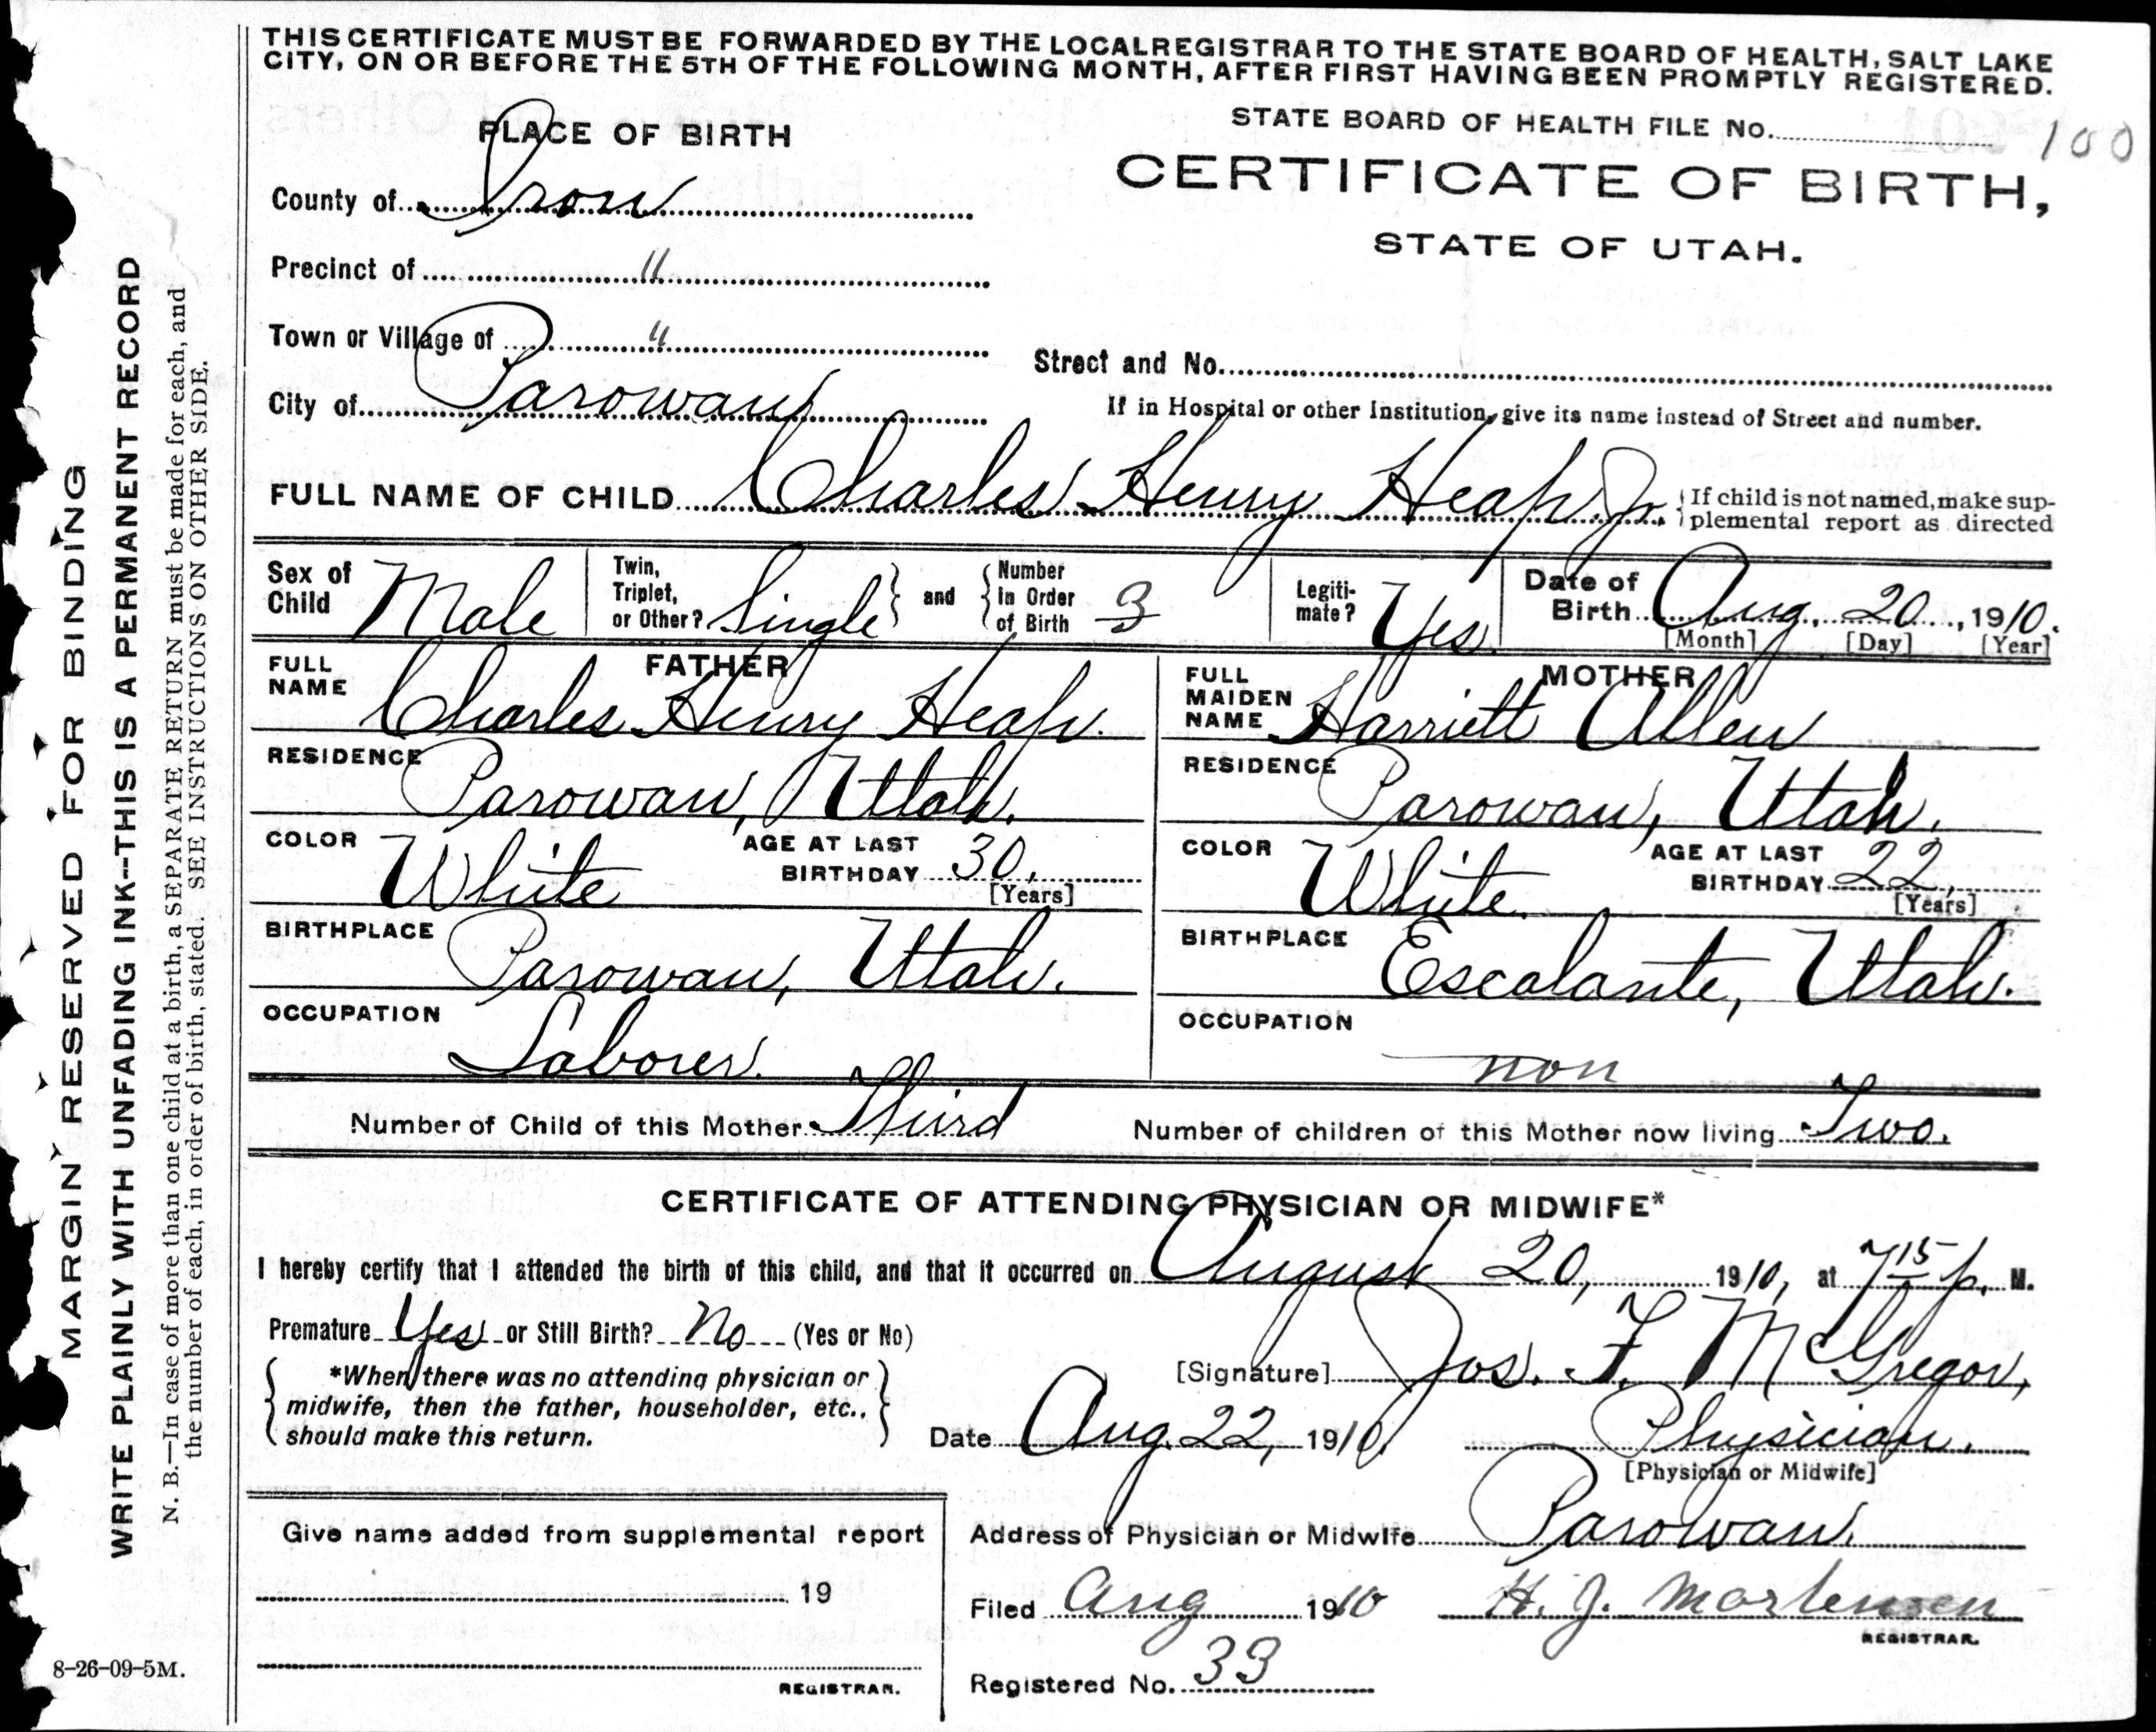 THIS CERTIFICATE MUST BE FORWARDED BY THE LOCAL REGISTRAR TO THE STATE BOARD OF HEALTH, SALT LAKE
CITY, ON OR BEFORE THE 5TH OF THE FOLLOWING MONTH, AFTER FIRST HAVING BEEN PROMPTLY REGISTERED.
PLACE OF BIRTH
STATE BOARD OF HEALTH FILE No. 100
CERTIFICATE OF BIRTH,
STATE OF UTAH.
County of Iron
Precinct of "
Town or Village of "
Street and No.
City of Parowan
If in Hospital or other Institution, give its name instead of Street and number.
FULL NAME OF CHILD Charles Henry Heap Jr.
If child is not named, make sup-
plemental report as directed
Sex of Child Male
Twin, Triplet, or Other? Single and Number In Order of Birth 3
Legiti-mate? Yes.
Date of Birth Aug. 20, 1910.
[Month] [Day] [Year]
FATHER
FULL NAME Charles Henry Heap.
RESIDENCE Parowan, Utah.
COLOR White AGE AT LAST BIRTHDAY 30.
[Years]
BIRTHPLACE Parowan, Utah.
OCCUPATION Laborer.
MOTHER
FULL MAIDEN NAME Harriett Allen
RESIDENCE Parowan, Utah.
COLOR White. AGE AT LAST BIRTHDAY 22,
[Years]
BIRTHPLACE Escalante, Utah.
OCCUPATION non
Number of Child of this Mother Third
Number of children of this Mother now living Two.
CERTIFICATE OF ATTENDING PHYSICIAN OR MIDWIFE*
I hereby certify that I attended the birth of this child, and that it occurred on August 20, 1910, at 7 15 p. M.
Premature Yes or Still Birth? No (Yes or No)
*When there was no attending physician or
midwife, then the father, householder, etc.,
should make this return.
[Signature] Jos. F. McGregor,
Date Aug. 22, 1910. Physician.
[Physician or Midwife]
Give name added from supplemental report
19
REGISTRAR.
Address of Physician or Midwife Parowan.
Filed Aug 1910 H. J. Mortensen
REGISTRAR.
Registered No. 33
MARGIN RESERVED FOR BINDING
WRITE PLAINLY WITH UNFADING INK--THIS IS A PERMANENT RECORD
N. B.—In case of more than one child at a birth, a SEPARATE RETURN must be made for each, and
the number of each, in order of birth, stated. SEE INSTRUCTIONS ON OTHER SIDE.
8-26-09-5M.